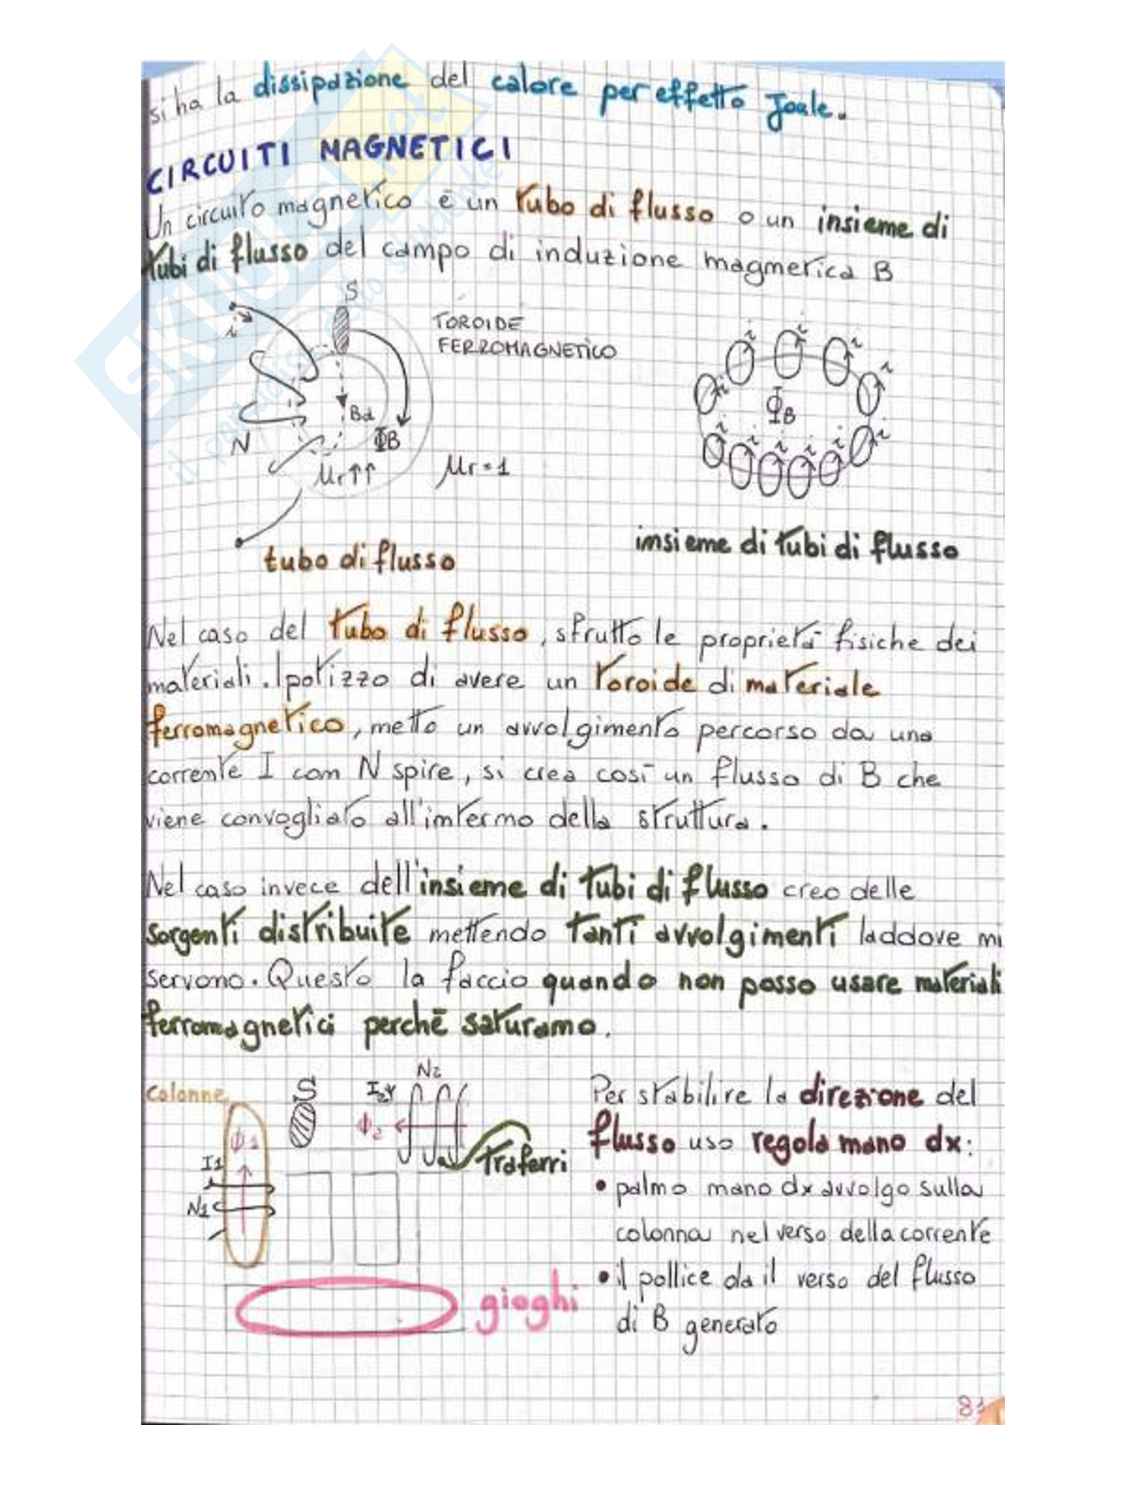 si ha la dissipazione del calore per effetto Joule.
CIRCUITI MAGNETICI
Un circuito magnetico è un tubo di flusso o un insieme di
tubi di flusso del campo di induzione magmetica B
S
i
TOROIDE
FERROMAGNETICO
Bd
ΦB
N
μr↑↑
μr=1
i i i i i i i i i i i
ΦB
tubo di flusso
imsieme di tubi di flusso
Nel caso del tubo di flusso, sfrutto le proprietà fisiche dei
materiali. Ipotizzo di avere un toroide di materiale
ferromagnetico, metto un avvolgimento percorso da una
corrente I com N spire, si crea così un flusso di B che
viene convogliato all'imtermo della struttura.
Nel caso invece dell'insieme di tubi di flusso creo delle
sorgenti distribuite mettendo tanti avvolgimenti laddove mi
servono. Questo la faccio quando non posso usare materiali
ferromagnetici perchè saturamo.
Colonne
S
I2
N2
Φ1
Φ2
I1
N1
Traferri
gioghi
Per stabilire la direzione del
flusso uso regola mano dx:
• palmo mano dx avvolgo sulla
colonna nel verso della corrente
• il pollice da il verso del flusso
di B generato
81
SKUOLA.net
il paradiso dello studente